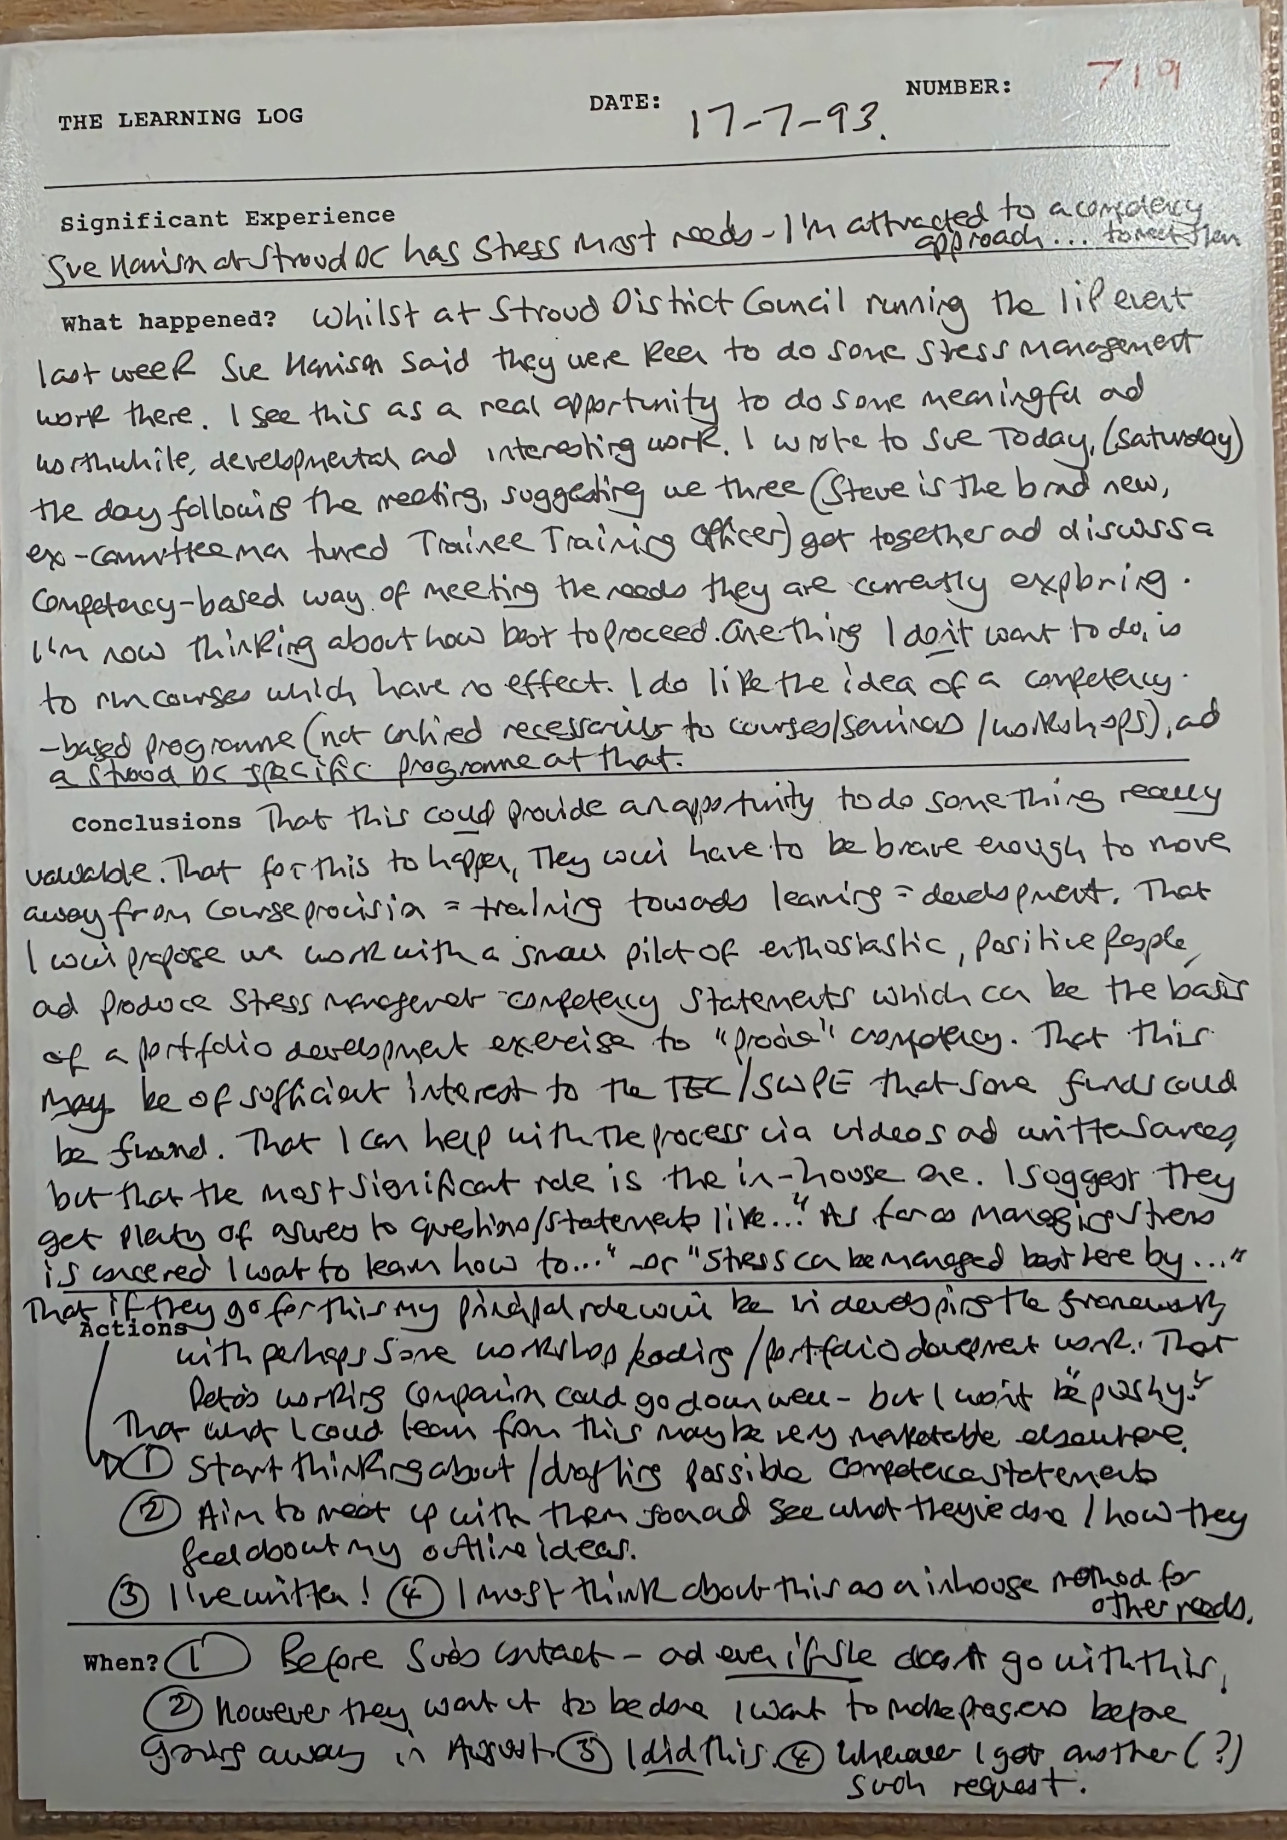 THE LEARNING LOG DATE: 17-7-93. NUMBER: 719
Significant Experience
Sue Harrison at Stroud DC has Stress Mgst needs - I'm attracted to a competency
approach... to meet them
What happened? Whilst at Stroud District Council running the IiP event
last week Sue Harrison said they were keen to do some stress management
work there. I see this as a real opportunity to do some meaningful and
worthwhile, developmental and interesting work. I wrote to Sue Today, (Saturday)
the day following the meeting, suggesting we three (Steve is the brand new,
ex-committee man turned Trainee Training Officer) get together and discuss a
Competency-based way of meeting the needs they are currently exploring.
I'm now thinking about how best to proceed. One thing I don't want to do, is
to run courses which have no effect. I do like the idea of a competency-
-based programme (not confined necessarily to courses/seminars/workshops), and
a Stroud DC specific programme at that.
Conclusions That this could provide an opportunity to do something really
valuable. That for this to happen, They will have to be brave enough to move
away from Course provision = training towards learning = development. That
I will propose we work with a small pilot of enthusiastic, positive people,
and produce Stress Management competency statements which can be the basis
of a portfolio development exercise to "prove" competency. That this
may be of sufficient interest to the TEC/SWPE that some funds could
be found. That I can help with the process via videos and written sources,
but that the most significant role is the in-house one. I suggest they
get plenty of answers to questions/statements like... "As far as managing stress
is concerned I want to learn how to..." -or "Stress can be managed best here by..."
That if they go for this my principal role will be in developing the framework
Actions
with perhaps some workshop leading/portfolio development work. That
Peta's working companion could go down well - but I won't be "pushy".
That what I could learn from this may be very marketable elsewhere.
① Start thinking about/drafting possible competence statements
② Aim to meet up with them soon and see what they've done/how they
feel about my outline ideas.
③ I've written! ④ I must think about this as an inhouse method for
other needs.
When? ① Before Sue's contact - and even if she doesn't go with this,
② However they want it to be done I want to make progress before
going away in August ③ I did this. ④ Whenever I get another (?)
such request.